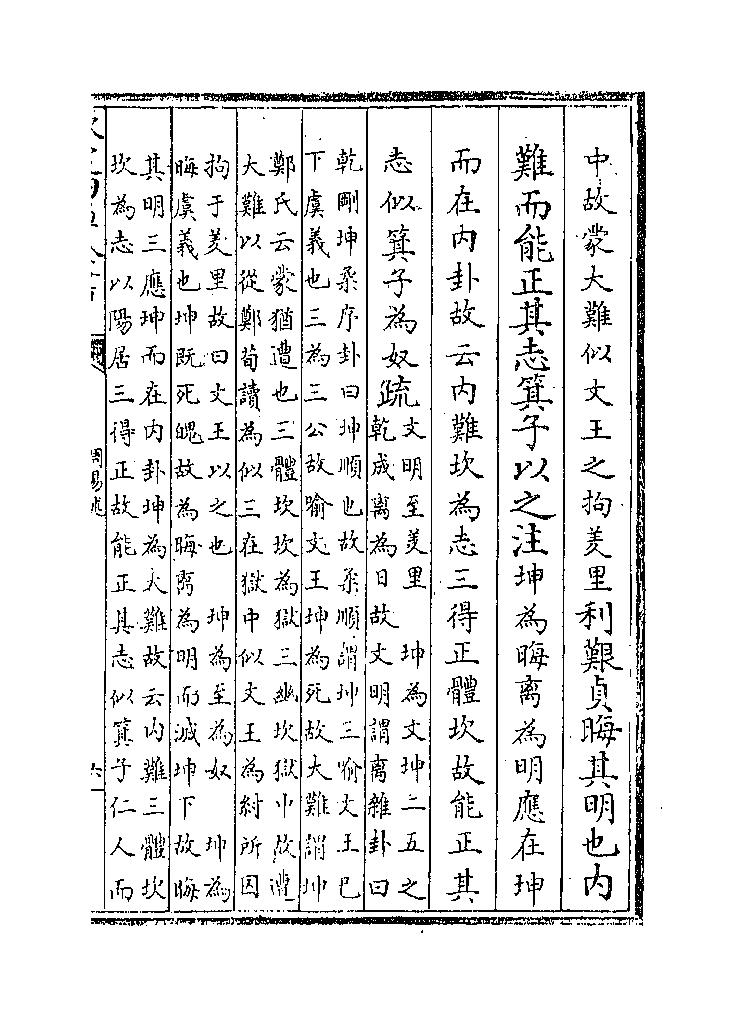 中故蒙大難似文王之拘羑里利艱貞晦其明也内
難而能正其志箕子以之注坤為晦離為明應在坤
而在内卦故云内難坎為志三得正體坎故能正其
志似箕子為奴疏
文明至羑里　坤為文坤二五之
乾成離為日故文明謂離雜卦曰
乾剛坤柔序卦曰坤順也故柔順謂坤三喻文王巳
下虞義也三為三公故喻文王坤為死故大難謂坤
鄭氏云蒙猶遭也三體坎坎為獄三幽坎獄中故遭
大難以從鄭荀讀為似三在獄中似文王為紂所囚
拘于羑里故曰文王以之也　坤為至為奴　坤為
晦虞義也坤既死魄故為晦離為明而滅坤下故晦
其明三應坤而在内卦坤為大難故云内難三體坎
坎為志以陽居三得正故能正其志似箕子仁人而
周易述
六